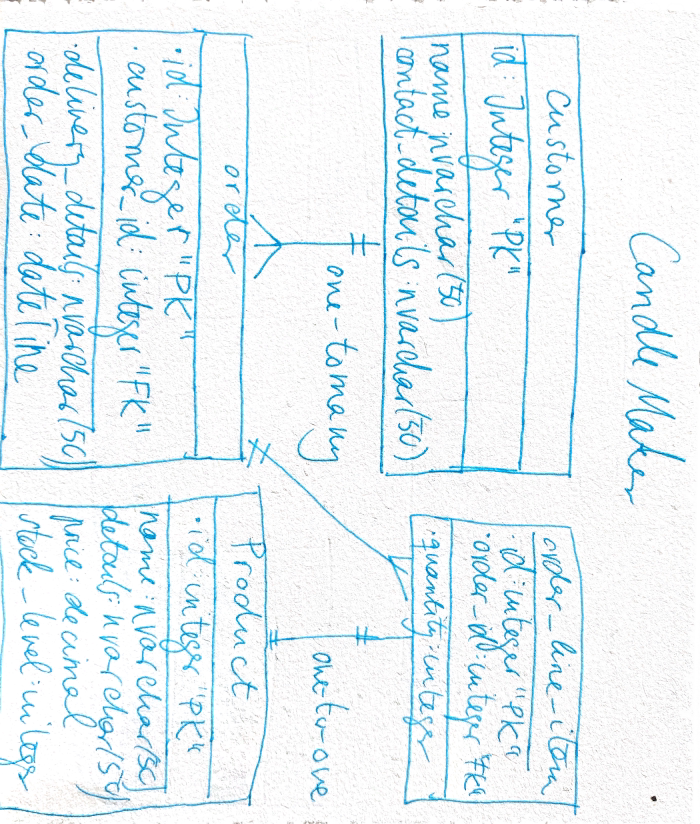 Candle Maker
customer
id: Integer "PK"
name: nvarchar(50)
contact_details: nvarchar(50)
one-tomany
order
·id: Integer "PK"
·customer_id: integer "FK"
·delivery_details: nvarchar(50)
order_date: dateTime
order_line_item
·id: integer "PK"
·order_id: integer "FK"
·quantity: integer
one-to-one
Product
·id: integer "PK"
name: nvarchar(50)
details: nvarchar(50)
price: decimal
stock_level: integer